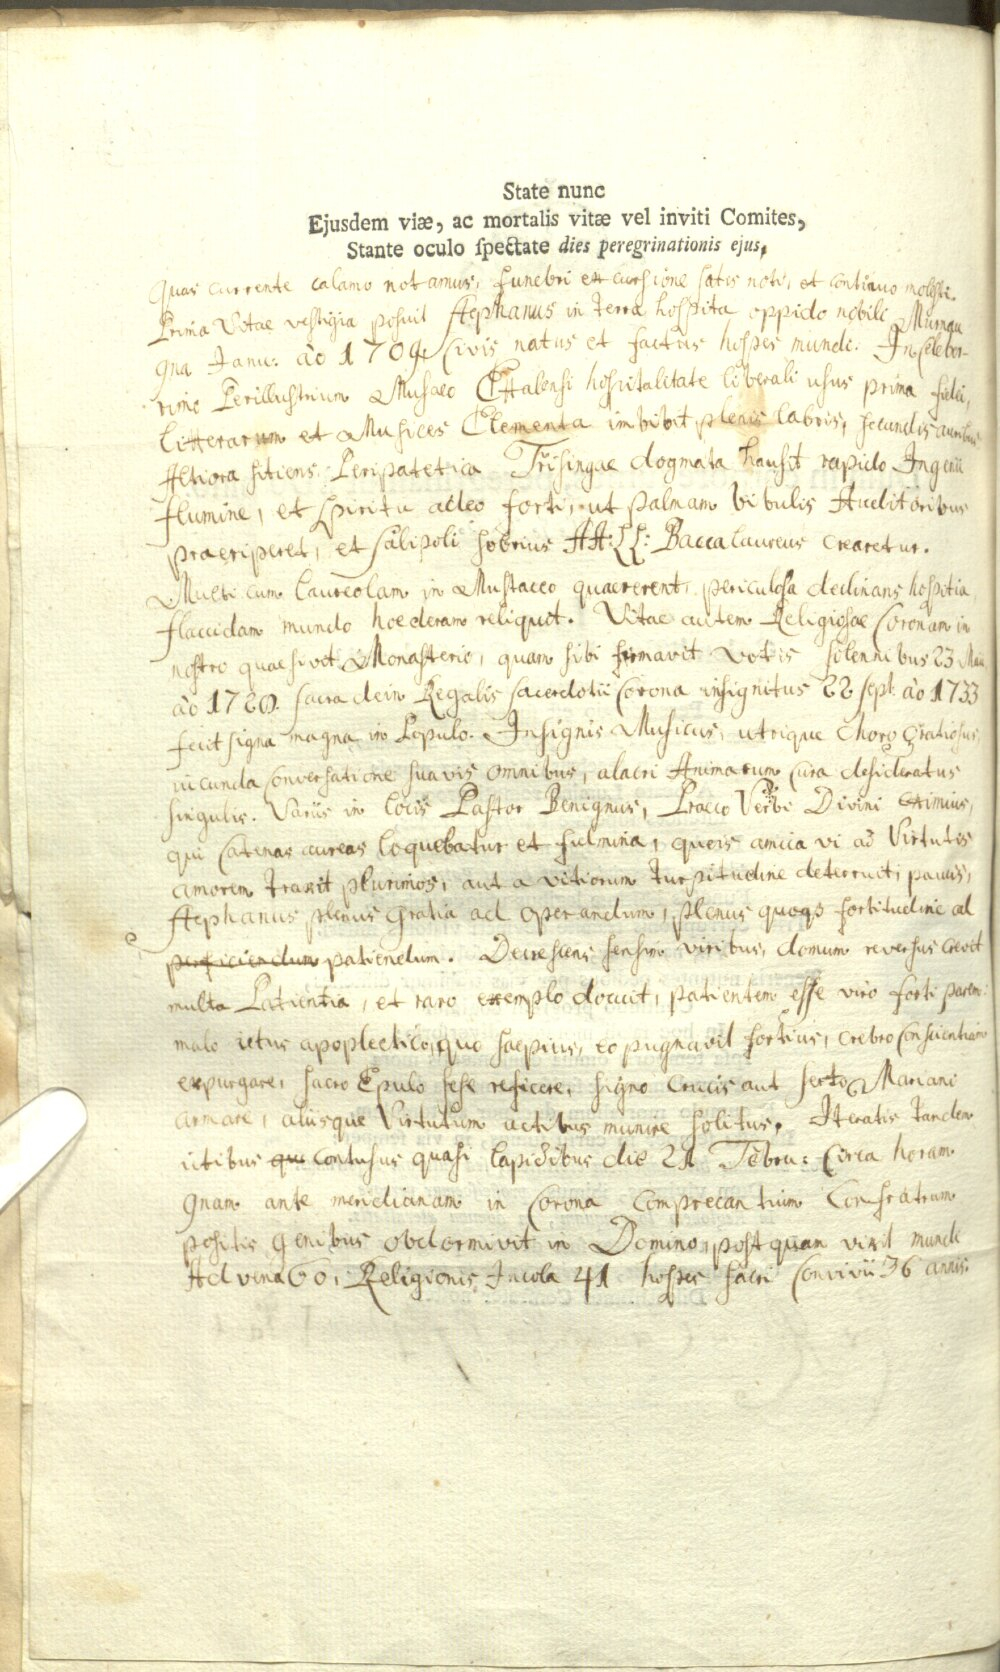 State nunc
Ejusdem viæ, ac mortalis vitæ vel inviti Comites,
Stante oculo ſpectate dies peregrinationis ejus,
quas currente calamo notamus, funebri excursione satis noti, et continuo molesti.
Prima Vitae vestigia posuit Stephanus in terra hospita oppido nobili Murnau
9na Janu: ao 1709. Civis natus et factus hospes mundi. In celeber-
rimo Perillustrium Musaeo Ettalensi hospitalitate liberali usus prima fidei,
litterarum et Musices Elementa imbibit plenis labris, secundis auribus
Altiora sitiens Peripatetica Frisingae dogmata hausit rapido Ingenii
flumine, et spiritu adeo forti, ut palmam bibulis Auditoribus
praeriperet, et Salipoli sobrius AA: LL: Baccalaureus crearetur.
Multi cum laureolam in Mustaceo quaererent, periculosa declinans hospitia,
flaccidam mundo hoederam reliquit. Vitae autem Religiosae Coronam in
nostro quaesivit Monasterio, quam sibi firmavit votis solennibus 23 Maii
ao 1728. sacra dein Regalis sacerdotii Corona insignitus 22 sept. ao 1733
fecit signa magna in Populo. Insignis Musicus, utrique Choro gratiosus,
iucunda Conversatione suavis omnibus, alacri Animarum Cura desideratus
singulis. Variis in locis Pastor Benignus, Praeco Verbi Divini eximius,
qui Catenas aureas loquebatur et fulmina, queis amica vi ad Virtutis
amorem traxit plurimos, aut a vitiorum turpitudine deterruit, paucis,
Stephanus plenus gratia ad operandum, plenus quoqs fortitudine ad
perficiendum patiendum. Decrescens sensim viribus, domum reversus crevit
multa Patientia, et raro exemplo docuit, patientem esse viro forti parem:
malo ictus apoplectico, quo saepius, eo pugnavit fortius, crebro Conscientiam
expurgare, sacro Epulo sese reficere, signo Crucis aut serto Mariano
armare, aliisque Virtutum actibus munire solitus. Iteratis tandem
ictibus qu contusus quasi lapidibus die 21 Febru: Circa horam
9nam ante meridianam in Corona Comprecantium Confratrum
positis genibus obdormivit in Domino, postquam vixit mundi
Advena 60, Religionis Incola 41 hospes sacri Convivii 36 annis.